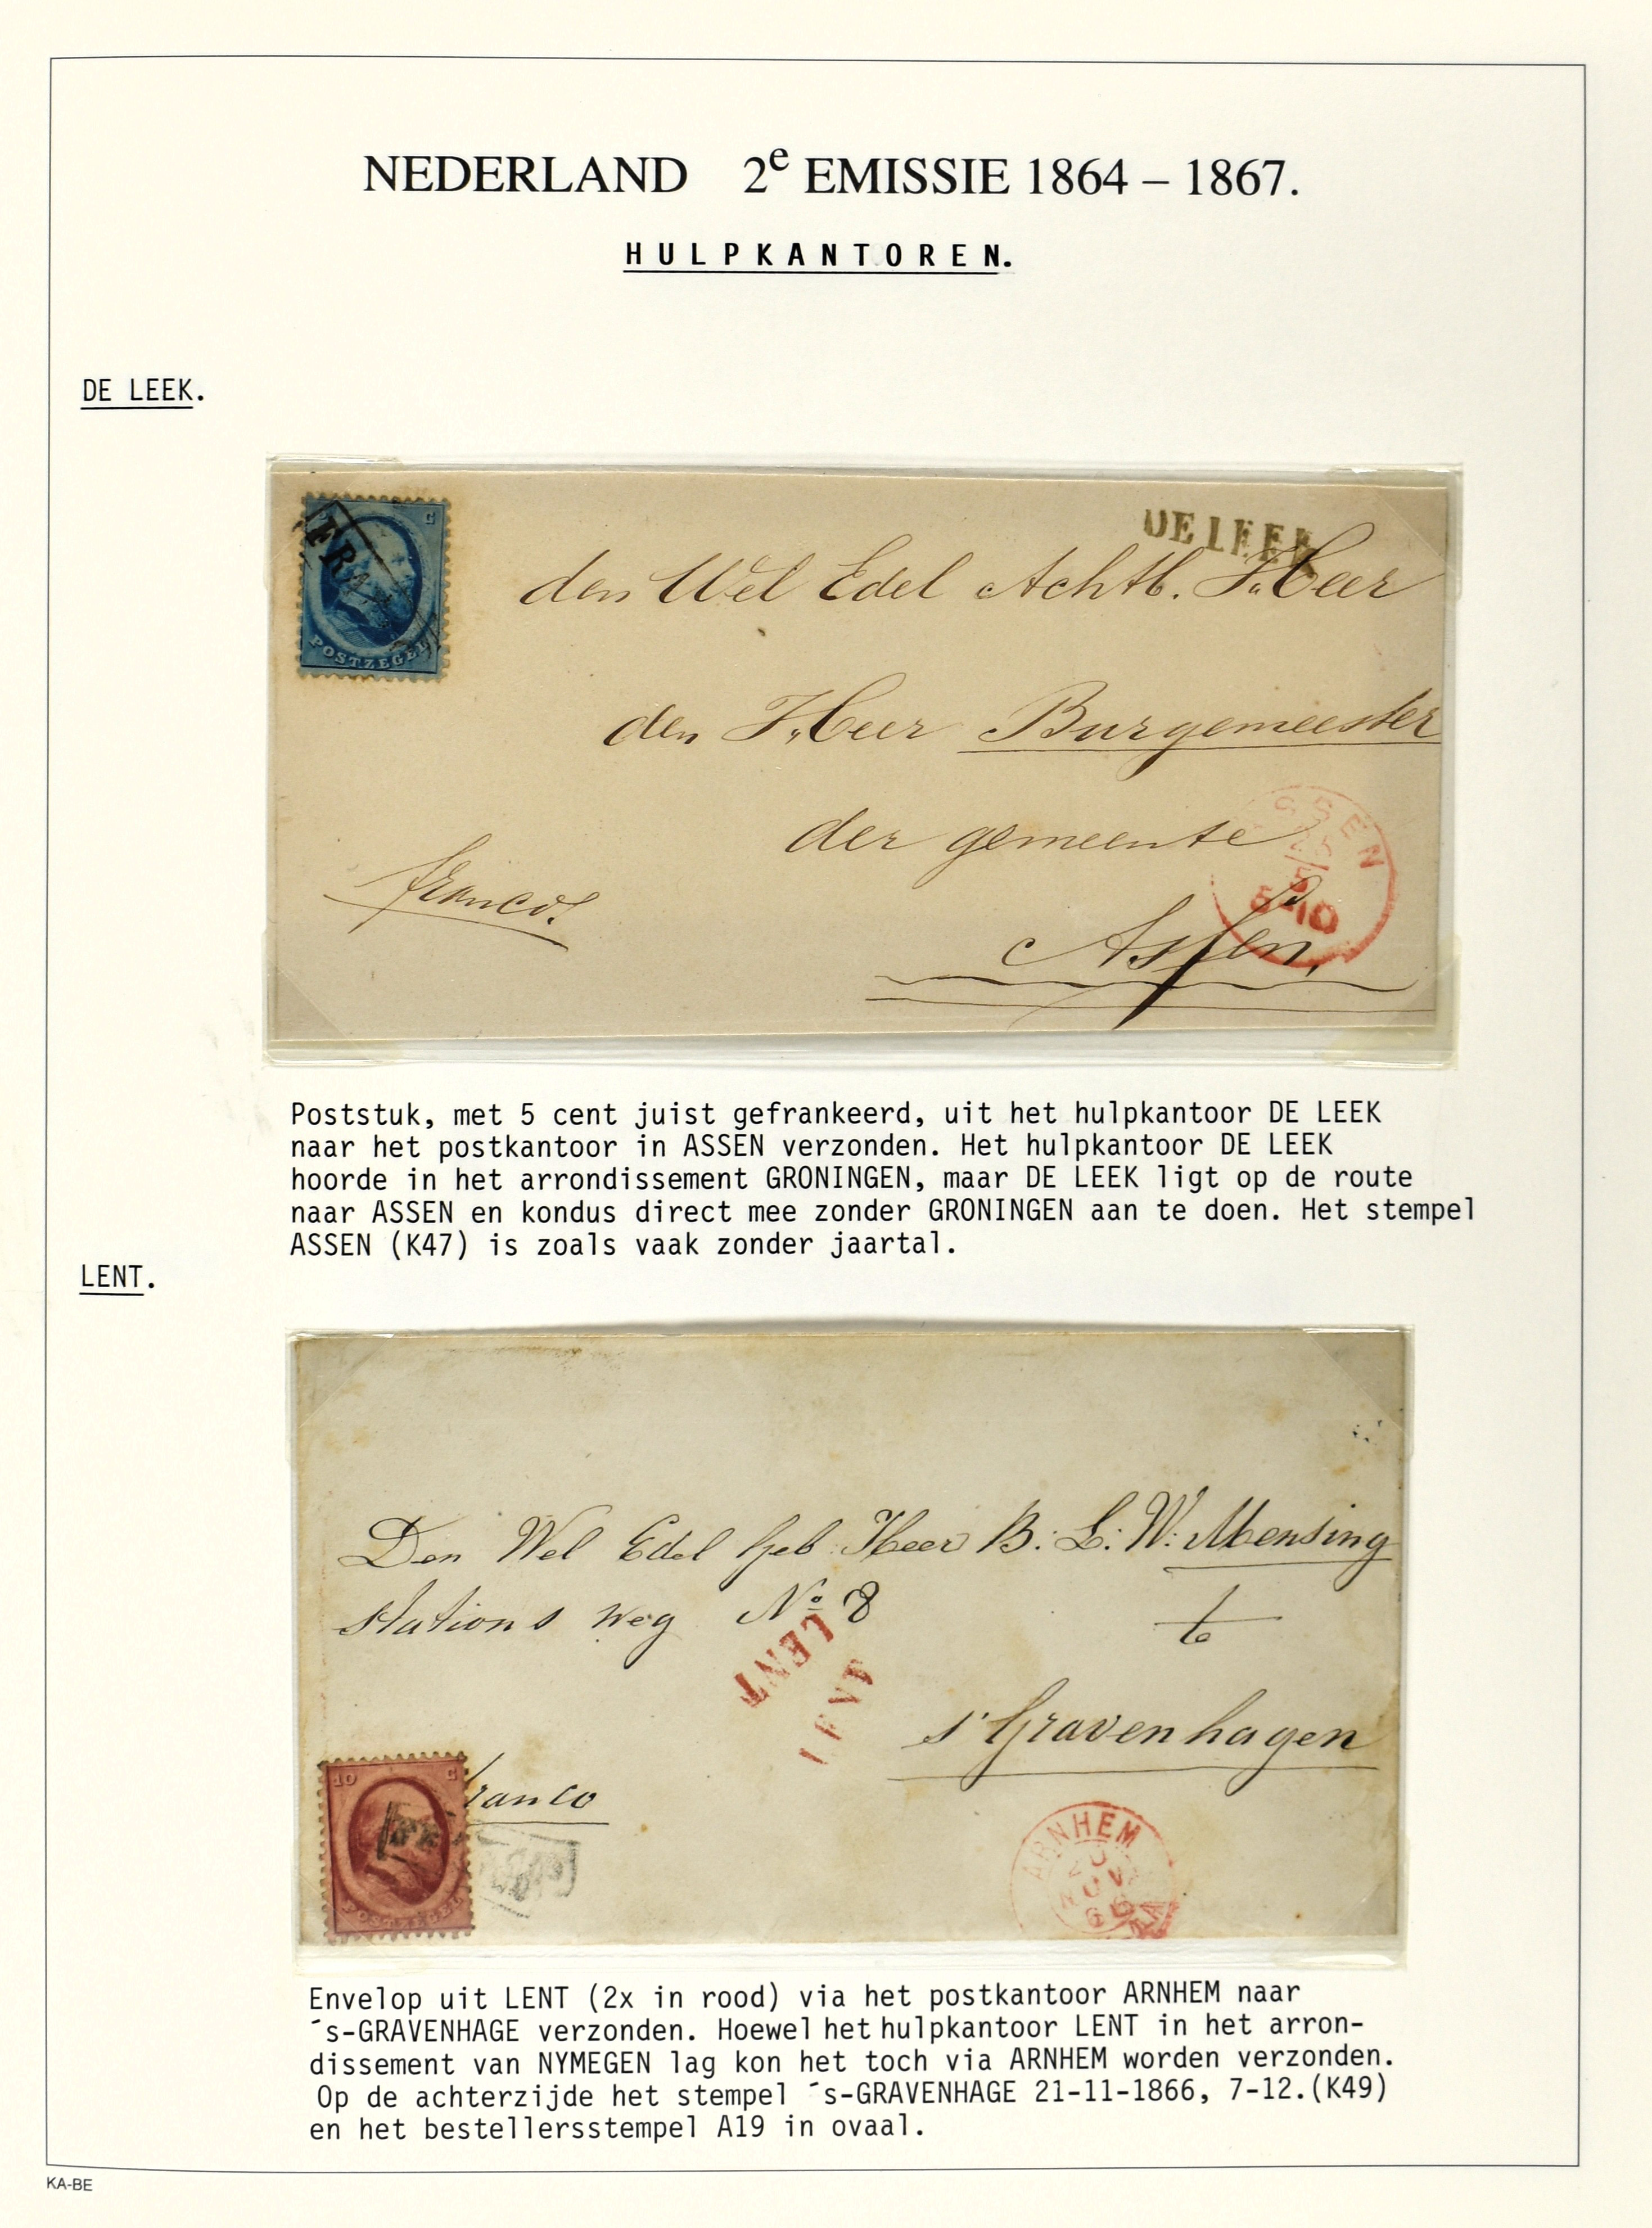 NEDERLAND 2e EMISSIE 1864 – 1867.
HULPKANTOREN.
DE LEEK.
C
FRANCO
POSTZEGEL
DE LEEK
den Wel Edel Achtb. Heer
den Heer Burgemeester
der gemeente
franco
Assen,
ASSEN
Poststuk, met 5 cent juist gefrankeerd, uit het hulpkantoor DE LEEK
naar het postkantoor in ASSEN verzonden. Het hulpkantoor DE LEEK
hoorde in het arrondissement GRONINGEN, maar DE LEEK ligt op de route
naar ASSEN en kondus direct mee zonder GRONINGEN aan te doen. Het stempel
ASSEN (K47) is zoals vaak zonder jaartal.
LENT.
Den Wel Edel Geb Heer B: L: W: Mensing
stations weg No 8
te
LENT
s'Gravenhagen
10 C
franco
POSTZEGEL
ARNHEM
NOV
66
Envelop uit LENT (2x in rood) via het postkantoor ARNHEM naar
´s-GRAVENHAGE verzonden. Hoewel het hulpkantoor LENT in het arron-
dissement van NYMEGEN lag kon het toch via ARNHEM worden verzonden.
Op de achterzijde het stempel ´s-GRAVENHAGE 21-11-1866, 7-12.(K49)
en het bestellersstempel A19 in ovaal.
KA-BE